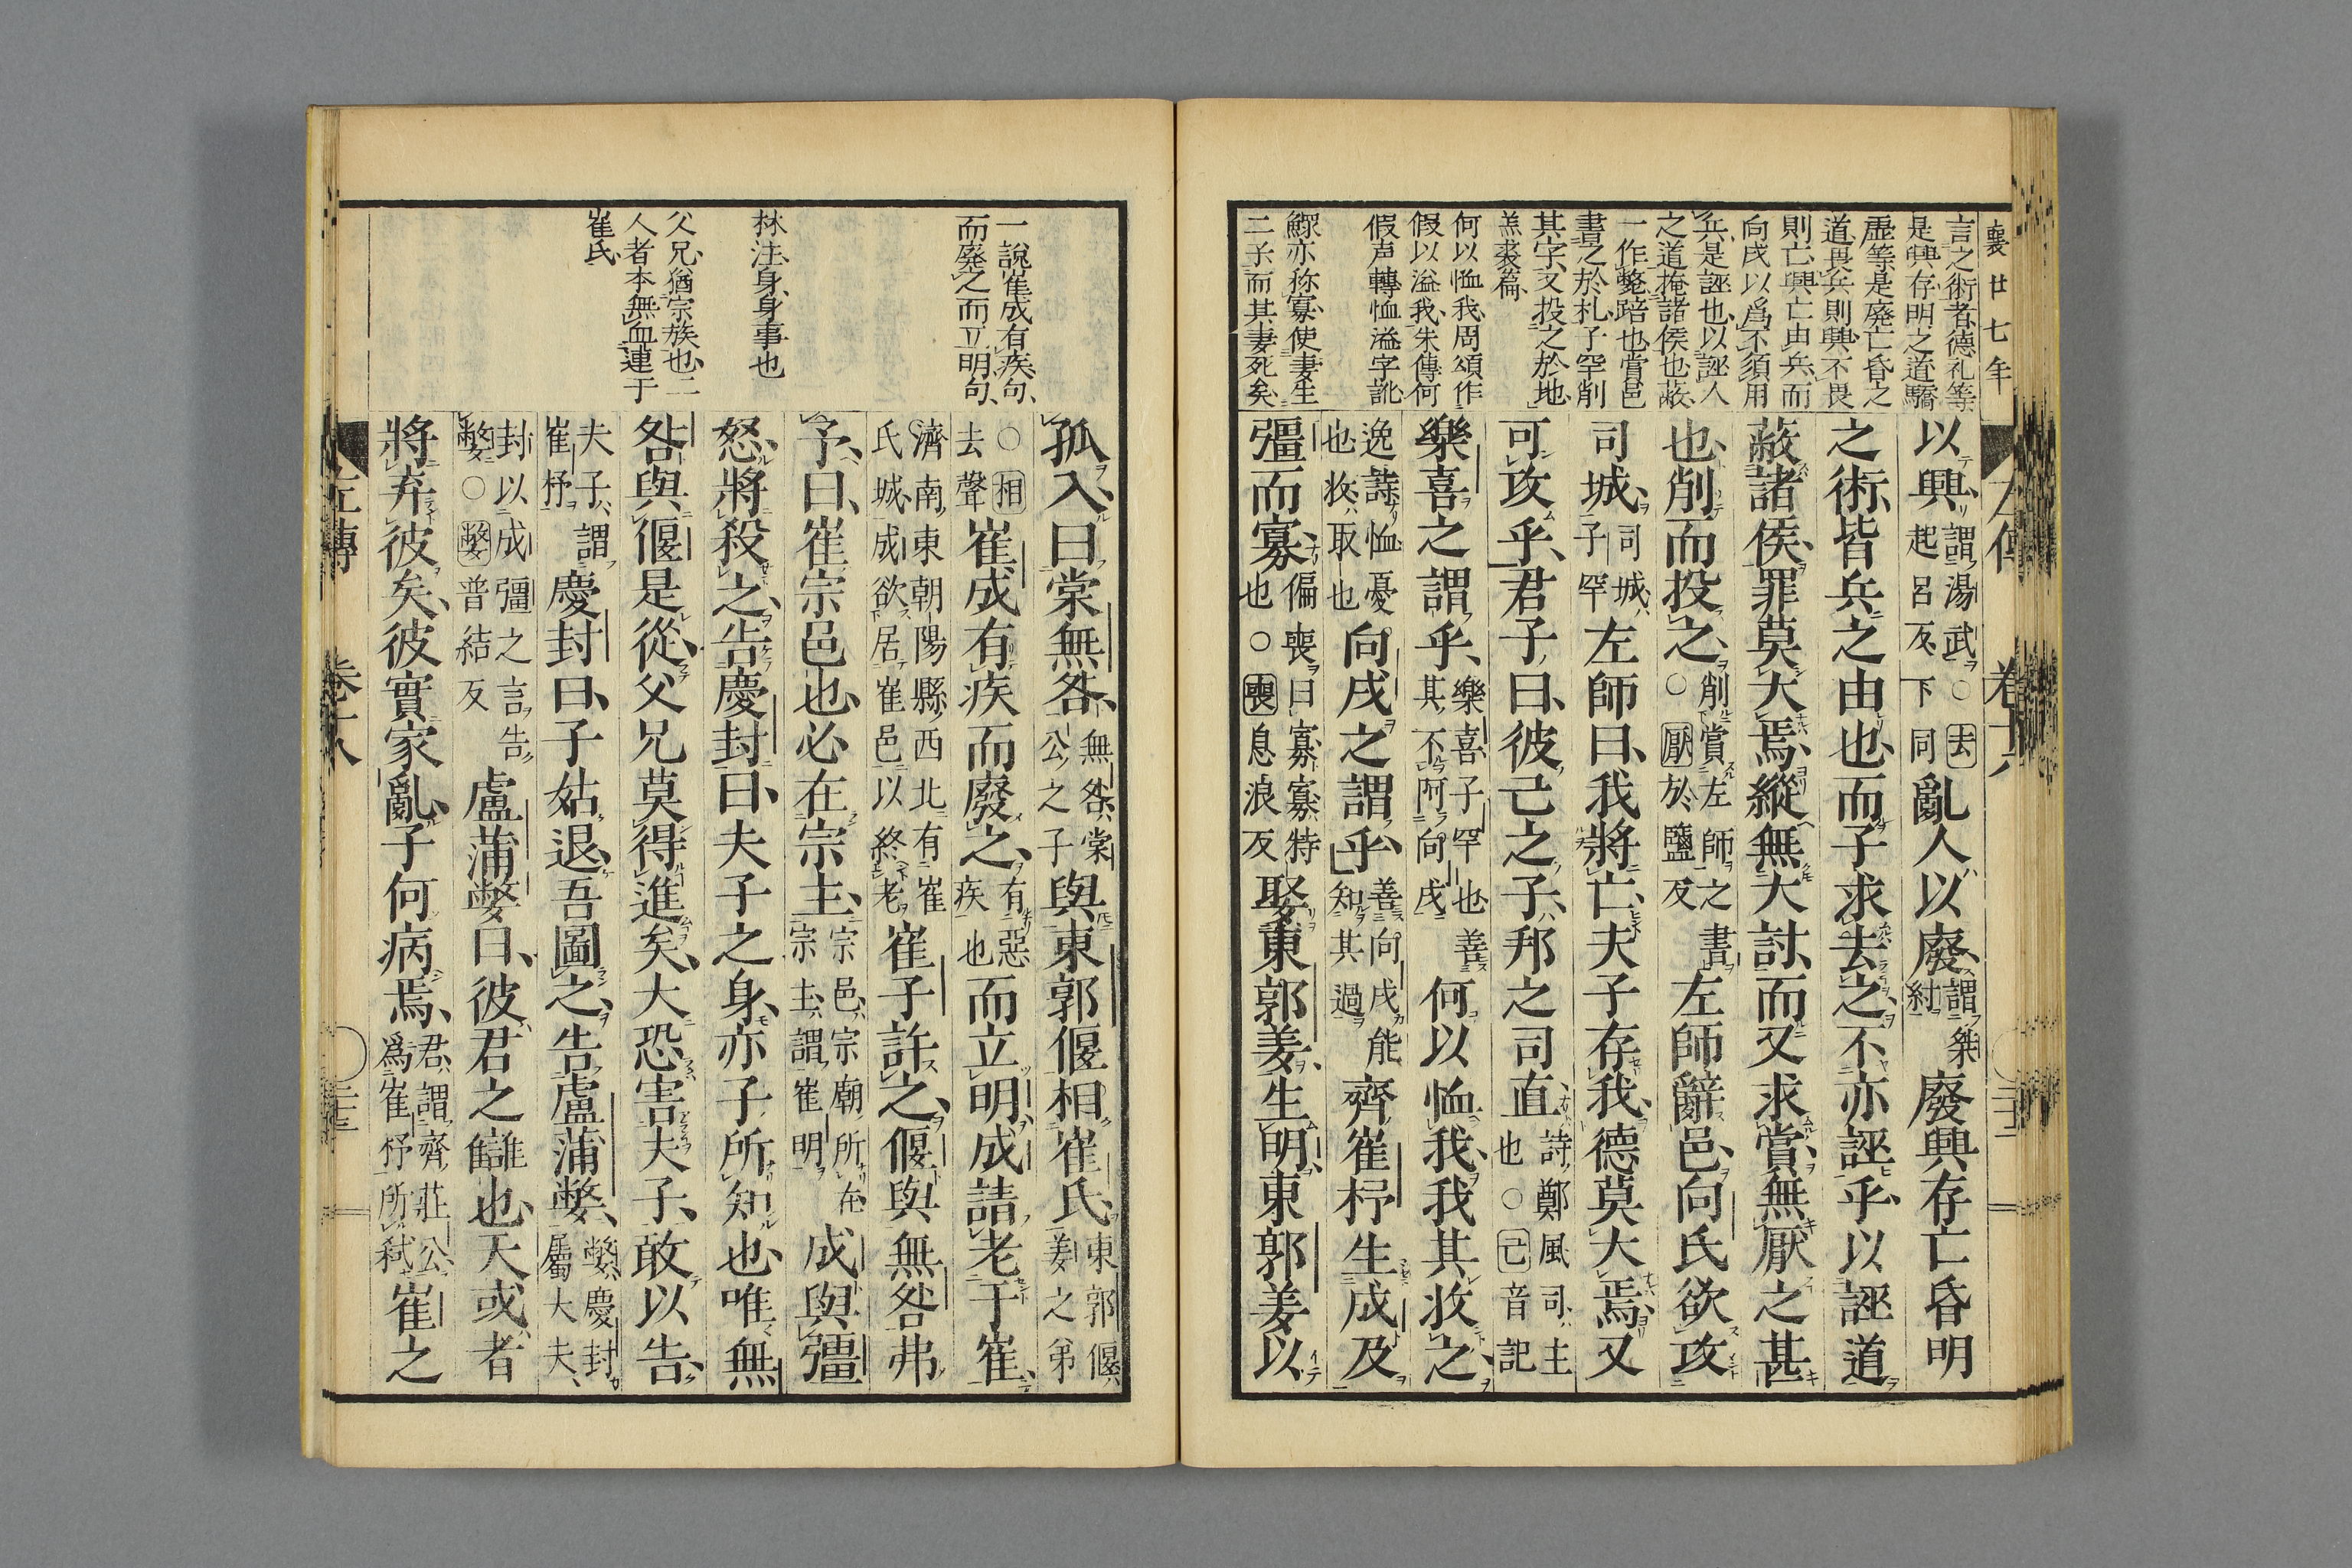 襄廿七年
言之術者德礼等
是興存明之道驕
虛等是廃亡昏之
道畏兵則興不畏
則亡興亡由兵而
向戌以爲不須用
兵是誣也以誣人
之道掩諸侯也蔽
一作斃踣也賞邑
書之於札子罕削
其字又投之於地
羔裘篇
何以恤我周頌作
假以溢我朱傳何
假声轉恤溢字訛
鰥亦称寡使妻生
二子而其妻死矣
左傳 卷十八
以興謂湯武○去起呂反下同亂人以廢謂桀紂廢興存亡昏明
之術皆兵之由也而子求去之不亦誣乎以誣道
蔽諸侯罪莫大焉縱無大討而又求賞無厭之甚
也削而投之削賞左師之書○厭於鹽反左師辭邑向氏欲攻
司城司城子罕左師曰我將亡夫子存我德莫大焉又
可攻乎君子曰彼己之子邦之司直詩鄭風司主也○己音記
樂喜之謂乎樂喜子罕也善其不阿向戌何以恤我我其收之
逸詩恤憂也收取也向戌之謂乎善向戌能知其過齊崔杼生成及
彊而寡偏喪曰寡寡特也○喪息浪反娶東郭姜生明東郭姜以
一說崔成有疾句
而廢之而立明句
林注身身事也
父兄猶宗族也二
人者本無血連于
崔氏
孤入曰棠無咎無咎棠公之子與東郭偃相崔氏東郭偃姜之弟
○相去聲崔成有疾而廢之有惡疾也而立明成請老于崔
濟南東朝陽縣西北有崔氏城成欲居崔邑以終老崔子許之偃與無咎弗
予曰崔宗邑也必在宗主宗邑宗廟所在宗主謂崔明成與彊
怒將殺之告慶封曰夫子之身亦子所知也唯無
咎與偃是從父兄莫得進矣大恐害夫子敢以告
夫子謂崔杼慶封曰子姑退吾圖之告盧蒲嫳嫳慶封屬大夫
封以成彊之言告嫳○嫳普結反盧蒲嫳曰彼君之讎也天或者
將弃彼矣彼實家亂子何病焉君謂齊莊公爲崔杼所弒崔之
左傳 卷十八